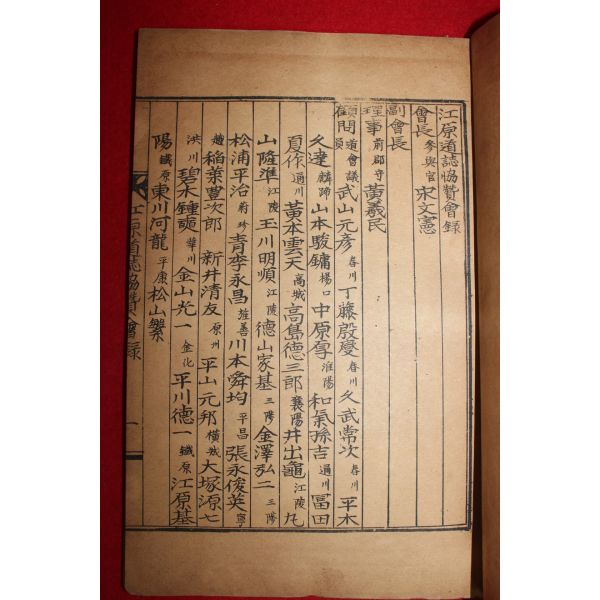 江原道誌協贊會錄
會長 參與官 宋文憲
副會長
理事 前郡守 黃義民
顧問 道會議員 武山元彦 春川 丁藤殷燮 春川 久武常次 春川 平木
久達 麟蹄 山本駿鏞 楊口 中原 淮陽 和氣孫吉 通川 冨田
夏作 通川 黃本雲天 高城 高島德三郎 襄陽 井出龜 江陵 丸
山隆準 江陵 玉川明順 江陵 德山家基 三陟 金澤弘二 三陟
松浦平治 蔚珍 青李永昌 旌善 川本舜均 平昌 張永俊英 寧
越 稲葉豊次郎 新井清友 原州 平山元邦 橫城 大塚源七
洪川 碧木鍾奭 華川 金山光一 金化 平川德一 鐵原 江原基
陽 鐵原 東川河龍 平康 松山
江原道誌協贊會錄 一